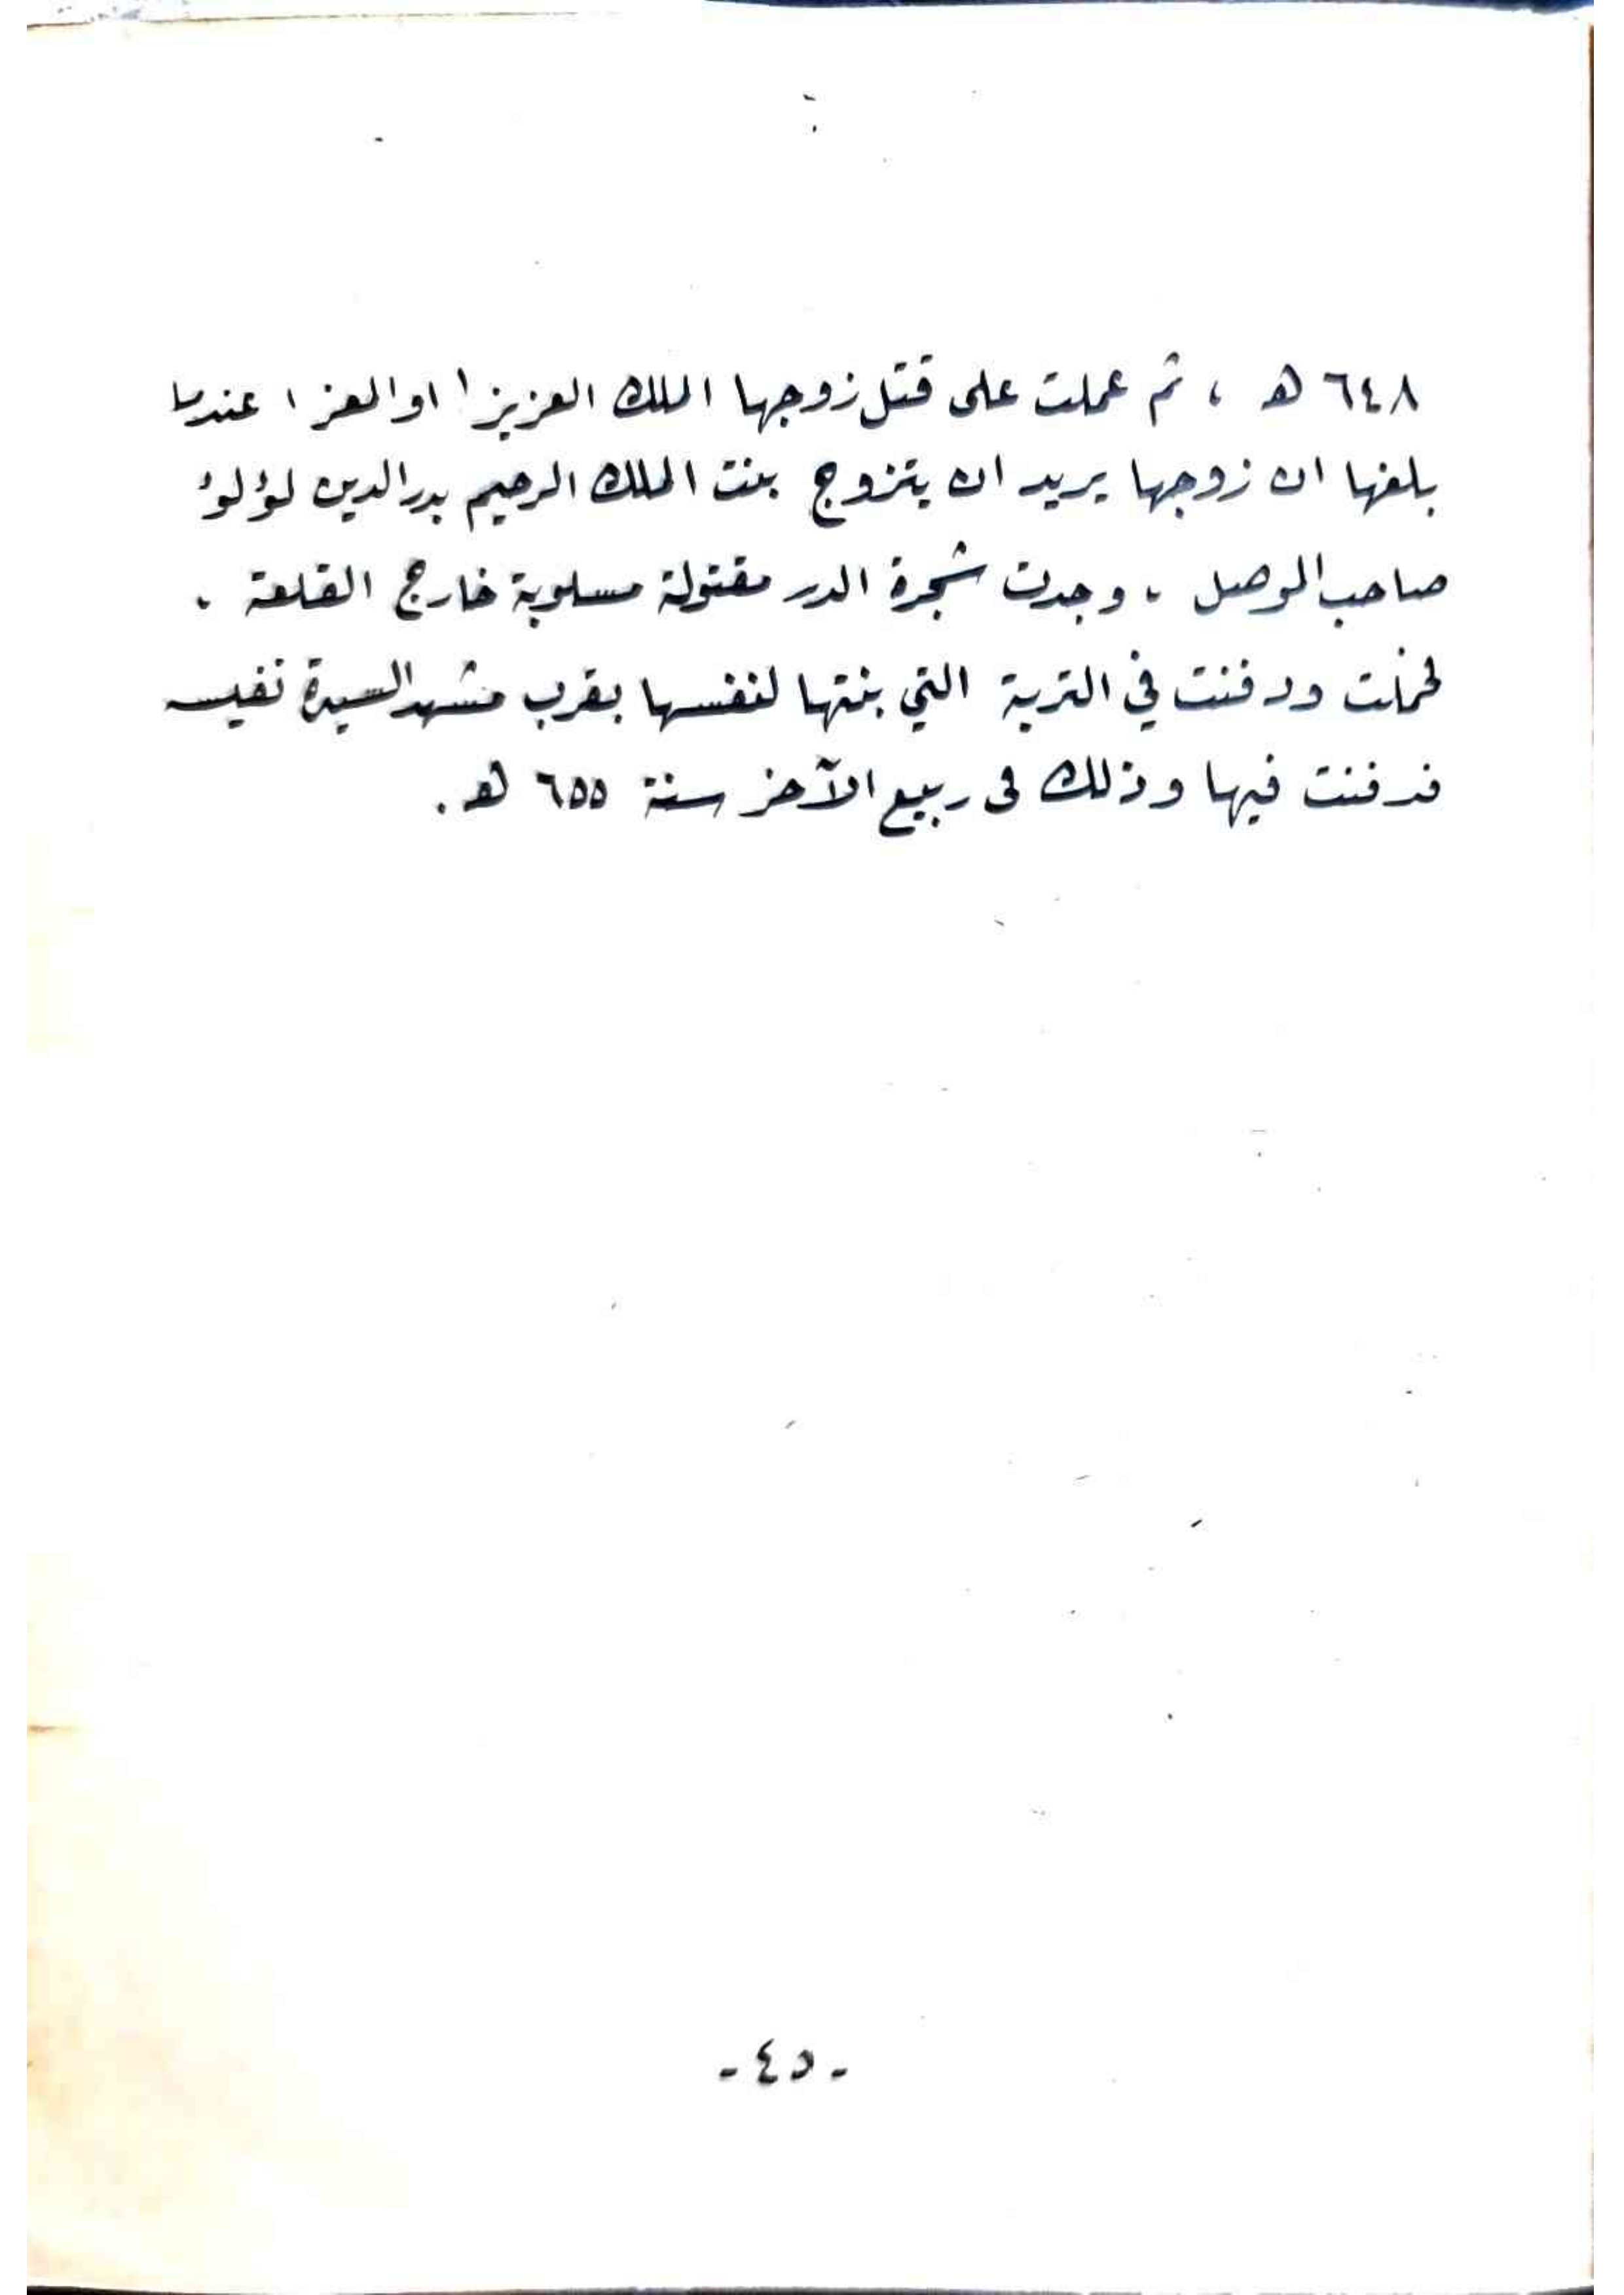 ٦٤٨ هـ ، ثم عملت على قتل زوجها الملك العزيز ( او المعز ) عندما
بلغها ان زوجها يريد ان يتزوج بنت الملك الرحيم بدر الدين لؤلؤ
صاحب الموصل ، وجدت شجرة الدر مقتولة مسلوبة خارج القلعة .
فحملت ودفنت في التربة التي بنتها لنفسها بقرب مشهد السيدة نفيسه
فدفنت فيها وذلك فى ربيع الآخر سنة ٦٥٥ هـ .
- ٤٥ -